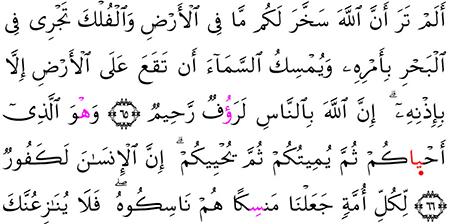 أَلَمْ تَرَ أَنَّ ٱللَّهَ سَخَّرَ لَكُم مَّا فِى ٱلْأَرْضِ وَٱلْفُلْكَ تَجْرِى فِى
ٱلْبَحْرِ بِأَمْرِهِۦ وَيُمْسِكُ ٱلسَّمَآءَ أَن تَقَعَ عَلَى ٱلْأَرْضِ إِلَّا
بِإِذْنِهِۦٓ ۗ إِنَّ ٱللَّهَ بِٱلنَّاسِ لَرَؤُفٌ رَّحِيمٌ ۝٦٥ وَهْوَ ٱلَّذِىٓ
أَحْياكُمْ ثُمَّ يُمِيتُكُمْ ثُمَّ يُحْيِيكُمْ ۗ إِنَّ ٱلْإِنسَـٰنَ لَكَفُورٌ
۝٦٦ لِّكُلِّ أُمَّةٍ جَعَلْنَا مَنسِكًا هُمْ نَاسِكُوهُ ۖ فَلَا يُنَـٰزِعُنَّكَ